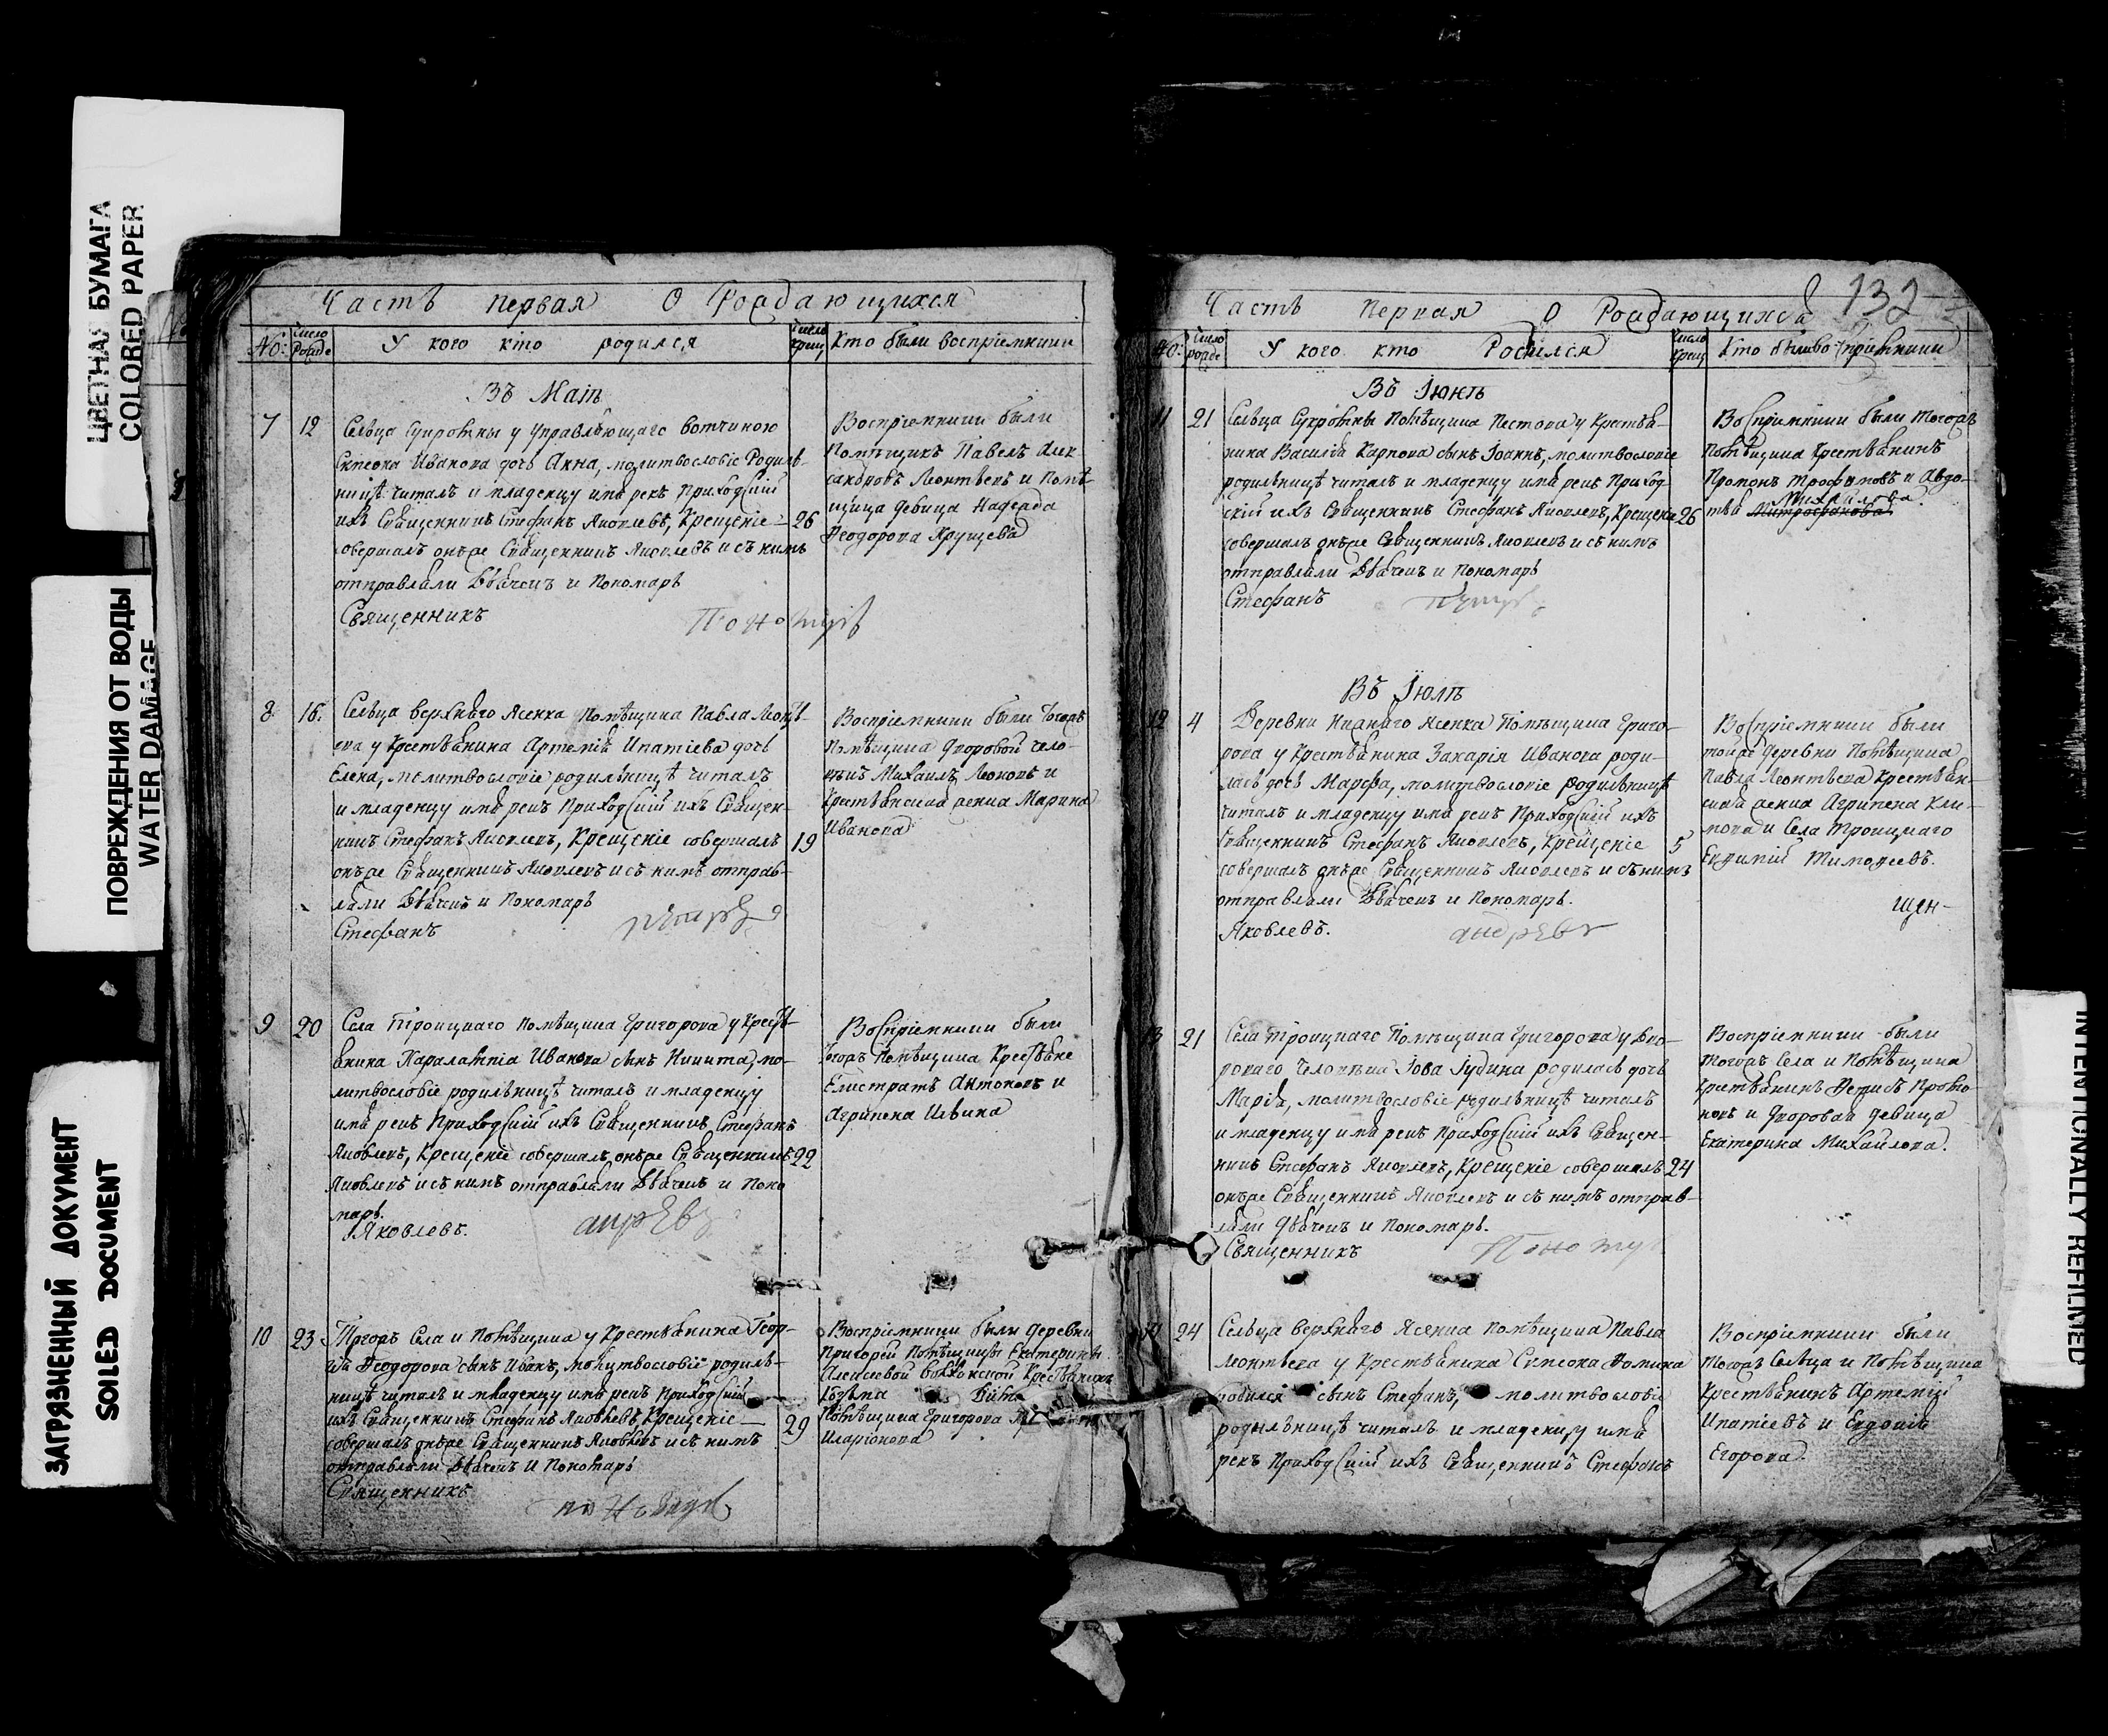 ЦВЕТНАЯ БУМАГА
COLORED PAPER
ПОВРЕЖДЕНИЯ ОТ ВОДЫ
WATER DAMAGE
ЗАГРЯЗНЕННЫЙ ДОКУМЕНТ
SOILED DOCUMENT
Часть первая О Рождающихся
No: Число Рожде У кого кто родился Число крещ Кто были воспріемники
Въ Маіѣ
7 12 Сельца Сукромны у управляющаго вотчиною
Симеона Иванова дочь Анна, молитвословіе Родиль-
ницѣ читалъ и младенцу имя рекъ Приходскій
ихъ Священникъ Стефанъ Яковлевъ, Крещеніе 26
совершалъ онъже Священникъ Яковлевъ и съ нимъ
отправляли Дьячекъ и Пономарь
Священникъ Пономарь
Воспріемники были
Помѣщикъ Павелъ Алек-
сандровъ Леонтьевъ и Помѣ-
щица девица Надежда
Феодорова Хрущева
8 16. Сельца верхняго Ясенка Помѣщика Павла Леонть-
ева у Крестьянина Артемія Ипатіева дочь
Елена, молитвословіе родильницѣ читалъ
и младенцу имя рекъ Приходскій ихъ Священ-
никъ Стефанъ Яковлевъ, Крещеніе совершалъ 19
онъже Священникъ Яковлевъ и съ нимъ отправ-
ляли Дьячекъ и Пономарь
Стефанъ
Воспріемники были Тогожъ
Помѣщика дворовой чело-
вѣкъ Михаилъ Леоновъ и
Крестьянская женка Марина
Иванова
9 20 Села Троицкаго Помѣщика Григорова у Кресть-
янина Харалампія Иванова сынъ Никита, мо-
литвословіе родильницѣ читалъ и младенцу
имя рекъ Приходскій ихъ Священникъ Стефанъ
Яковлевъ, Крещеніе совершалъ онъже Священникъ 22
Яковлевъ и съ нимъ отправляли Дьячекъ и Поно
марь.
Яковлевъ. андрЕвъ
Воспріемники были
Тогожъ Помѣщика Крестьяне
Елистратъ Антоновъ и
Агрипена Ильина
10 23 Тогожъ Села и Помѣщика у Крестьянина Геор-
гія Феодорова сынъ Иванъ, молитвословіе родиль-
ницѣ читалъ и младенцу имя рекъ Приходскій
ихъ Священникъ Стефанъ Яковлевъ, Крещеніе 29
совершалъ онъже Священникъ Яковлевъ и съ нимъ
отправляли Дьячекъ и Пономарь
Священникъ Пономарь
Воспріемники были деревни
Пригорей Помѣщицы Екатерины
Алексевой Волконской Крестьянинъ
Помѣщика Григорова
Иларіонова
132
Часть Первая О Рождающихся
No: Число рожде У кого кто Родился Число Крещ Кто были воспріемники
Въ Іюнѣ
11 21 Сельца Сукромны Помѣщика Пестова у Крестья-
нина Василія Карпова сынъ Іоаннъ, молитвословіе
родильницѣ читалъ и младенцу имя рекъ Приход-
скій ихъ Священникъ Стефанъ Яковлевъ, Крещеніе 26
совершалъ онъже Священникъ Яковлевъ и съ нимъ
отправляли Дьячекъ и Пономарь
Стефанъ
Воспріемники были Тогожъ
Помѣщика Крестьянинъ
Трофимовъ и Авдо-
тья Митрофанова Михайлова
Въ Іюлѣ
12 4 Деревни Нижняго Ясенка Помѣщика Григо-
рова у Крестьянина Захарія Иванова роди-
лась дочь Марфа, молитвословіе родильницѣ
читалъ и младенцу имя рекъ Приходскій ихъ
Священникъ Стефанъ Яковлевъ, Крещеніе 5
совершалъ онъже Священникъ Яковлевъ и съ нимъ
отправляли Дьячекъ и Пономарь.
Яковлевъ. андрЕвъ
Воспріемники были
тойже деревни Помѣщика
Павла Леонтьева Крестьян-
ская женка Агрипена Кли-
мова и Села Троицкаго
Евдокимъ Тимофеевъ.
щен-
13 21 Села Троицкаго Помѣщика Григорова у Дво-
роваго Человѣка Іова Іудина родилась дочь
Марія, молитвословіе родильницѣ читалъ
и младенцу имя рекъ Приходскій ихъ Священ-
никъ Стефанъ Яковлевъ, Крещеніе совершалъ 24
онъже Священникъ Яковлевъ и съ нимъ отправ-
ляли дьячекъ и Пономарь.
Священникъ Пономарь
Воспріемники были
Тогожъ Села и Помѣщика
крестьянинъ Денисъ Проко-
повъ и дворовая девица
Екатерина Михайлова.
14 24 Сельца верхняго Ясенка Помѣщика Павла
Леонтьева у Крестьянина Симеона Фомина
родился сынъ Стефанъ, молитвословіе
родильницѣ читалъ и младенцу имя
рекъ Приходскій ихъ Священникъ Стефанъ
Воспріемники были
Тогожъ Сельца и Помѣщика
Крестьянинъ Артемій
Ипатіевъ и Евдокія
Егорова.
INTENTIONALLY REFILMED